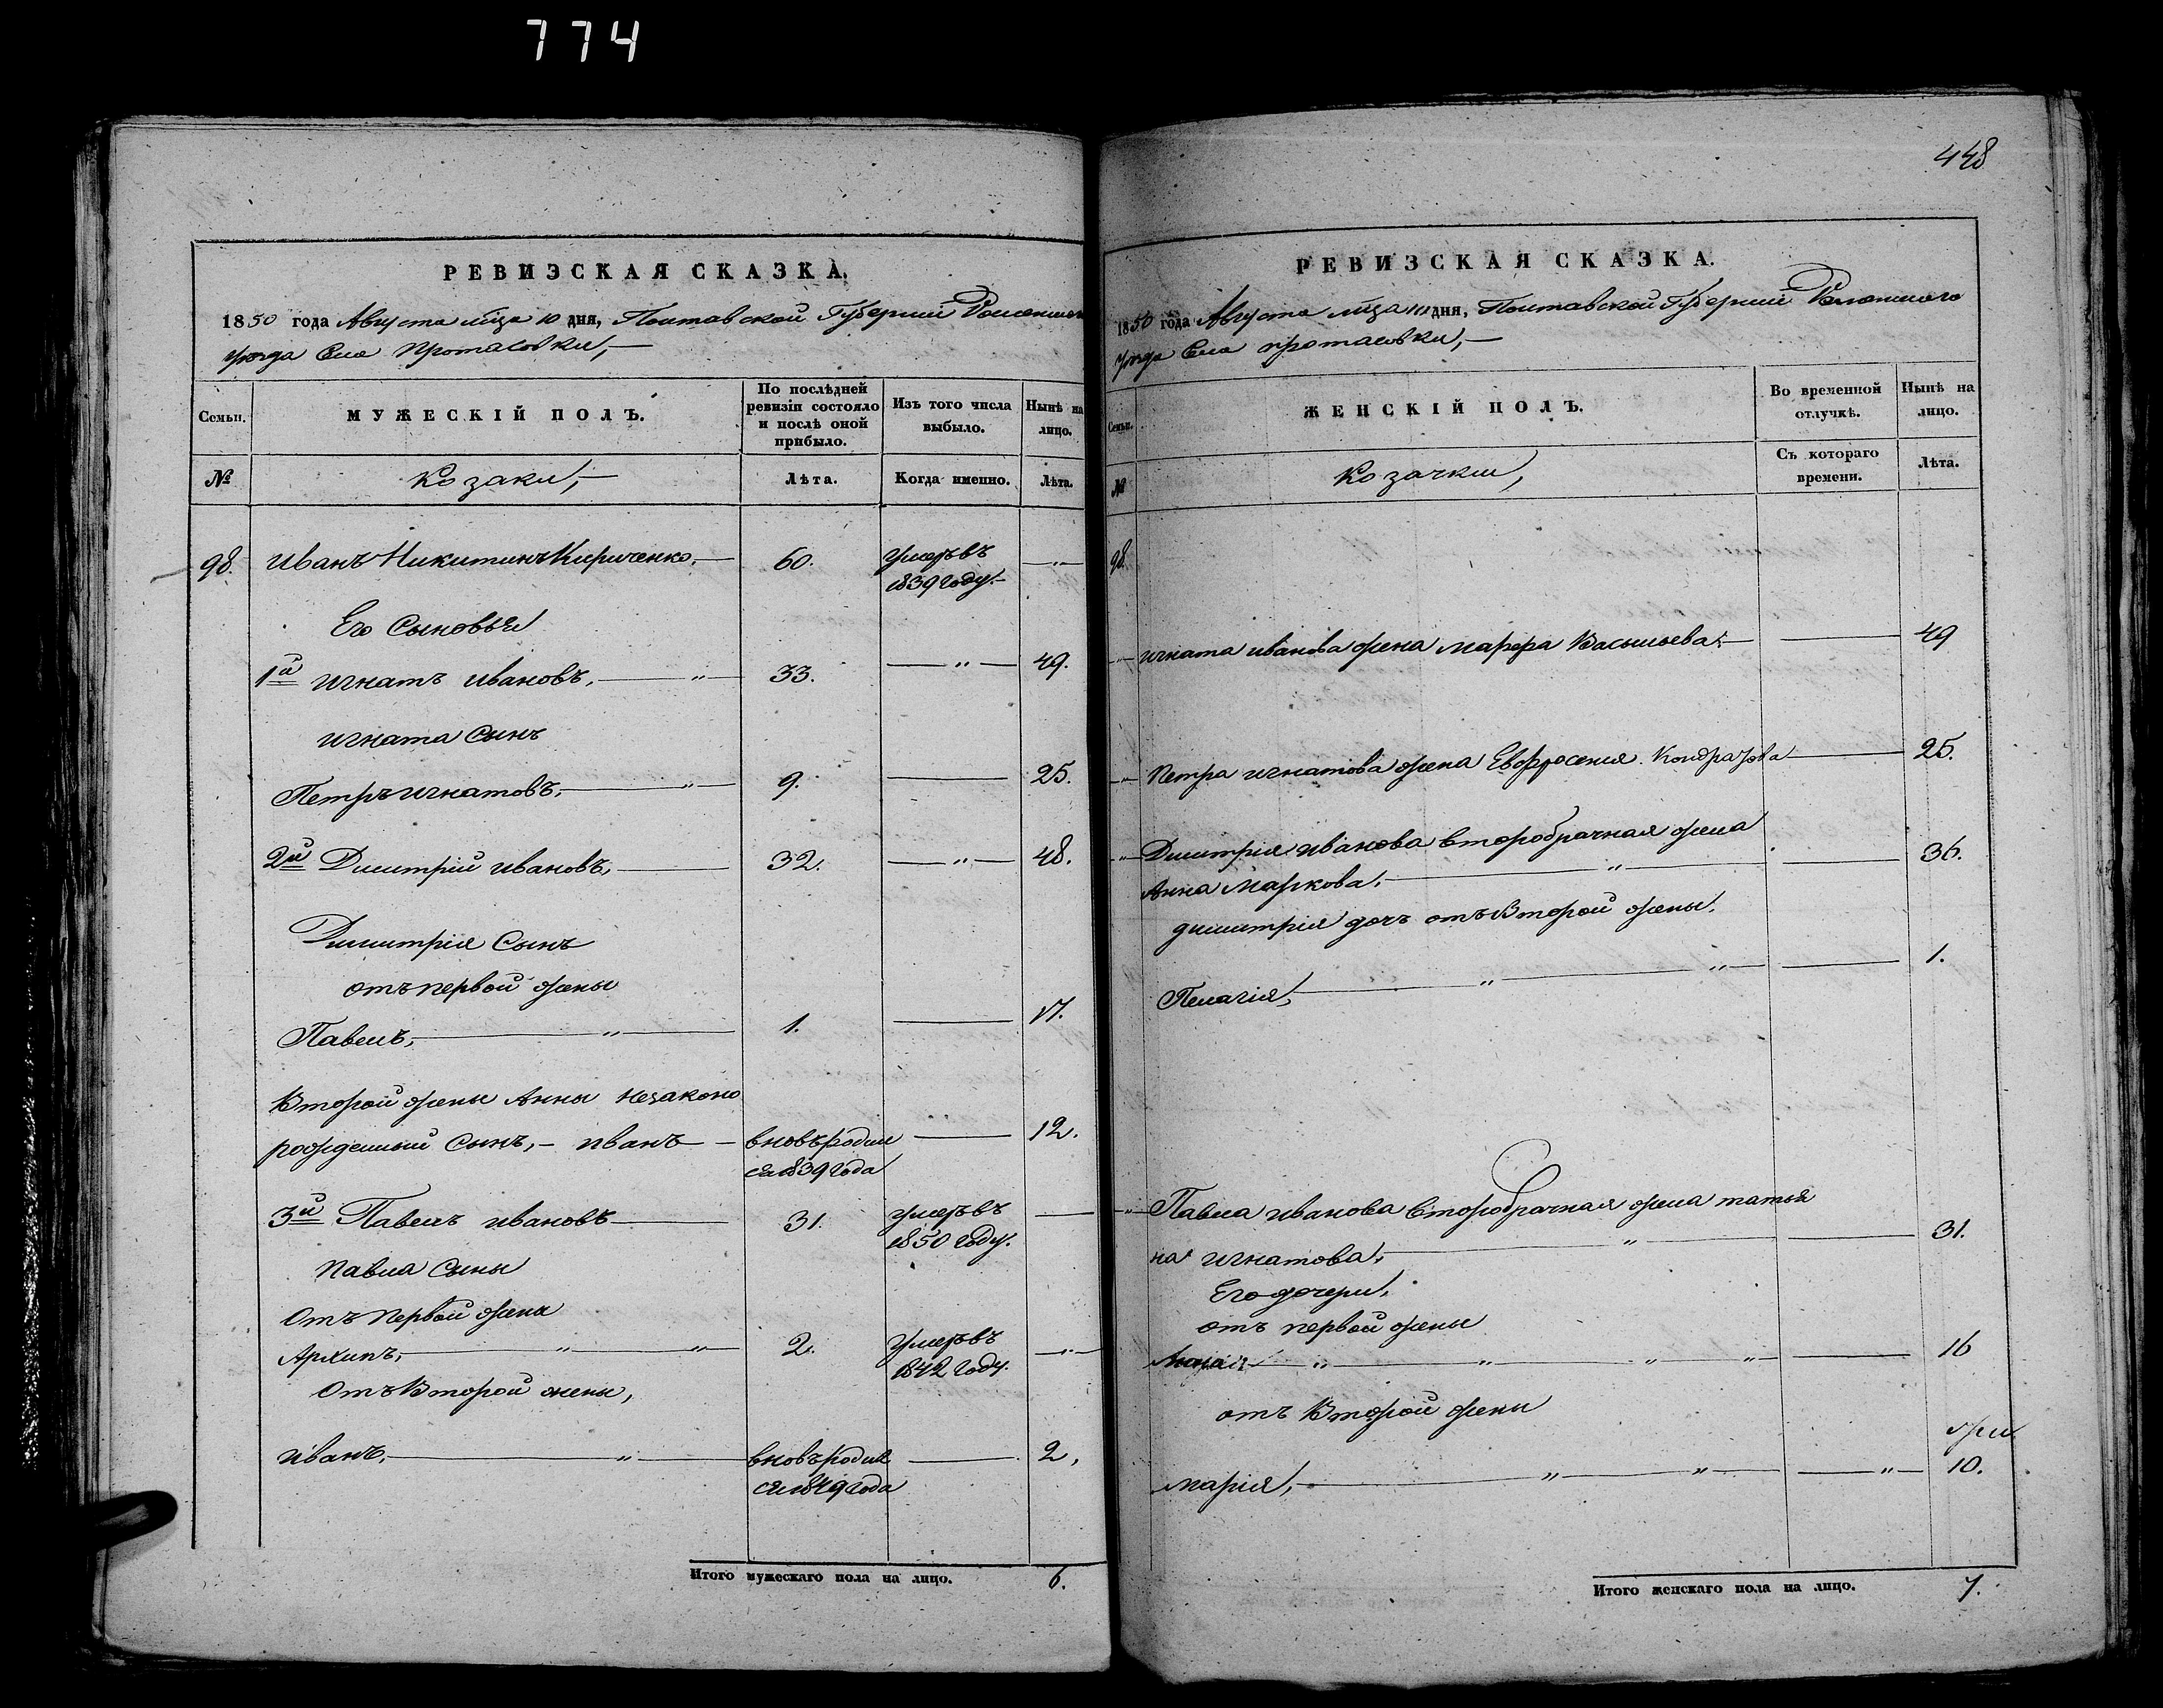 774
РЕВИЗСКАЯ СКАЗКА.
1850 года Августа м͠ца 10 дня, Полтавской Губернии Роменскаго
уѣзда Села Протасовки,
Семьи.
МУЖЕСКІЙ ПОЛЪ.
По послѣдней ревизіи состояло и послѣ оной прибыло.
Изъ того числа выбыло.
Нынѣ на лицо.
№
Козаки,
Лѣта.
Когда именно.
Лѣта.
98. Иванъ Никитинъ Кириченко. 60. умеръ въ
1839 году.
Его Сыновья
1й игнатъ ивановъ. " 33. " 49.
игната Сынъ
Петръ игнатовъ. " 9. 25.
2й Димитрій ивановъ, 32. " 48.
Димитрія Сынъ
отъ первой жены
Павелъ, " 1. 17.
Второй жены Анны незаконо
рожденный сынъ, - иванъ - вновь родил 12.
ся 1839 года
3й Павелъ ивановъ 31. умеръ въ
1850 году.
Павла Сыны
отъ первой жены
Архипъ, " " 2. умеръ въ "
1842 году.
отъ Второй жены,
иванъ, " вновь родил 2,
ся 1849 года
Итого мужескаго пола на лицо. 6.
448
РЕВИЗСКАЯ СКАЗКА.
1850 года Августа м͠ца 10 дня, Полтавской Губерніи Роменскаго
уѣзда Села протасовки,
Семьи.
ЖЕНСКІЙ ПОЛЪ.
Во временной отлучкѣ.
Нынѣ на лицо.
№
Козачки,
Съ котораго времени.
Лѣта.
98.
" игната иванова жена марфа Васильева. 49
" Петра игнатова жена Евфросенія. Кондратова 25.
" Димитрія иванова второбрачная жена
Анна Маркова. " 36.
димитрія дочь отъ Второй жены.
Пелагія, " " 1.
" Павла иванова второбрачная жена татья
на игнатова. " 31.
Его дочери.
отъ первой жены
" " " " 16
отъ Второй жены
марія, " " " 10.
Итого женскаго пола на лицо. 7.